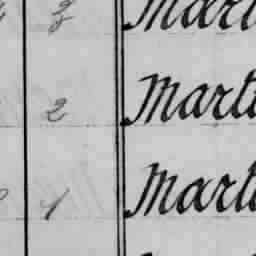 3 Mart
2 Mart
1 Mart